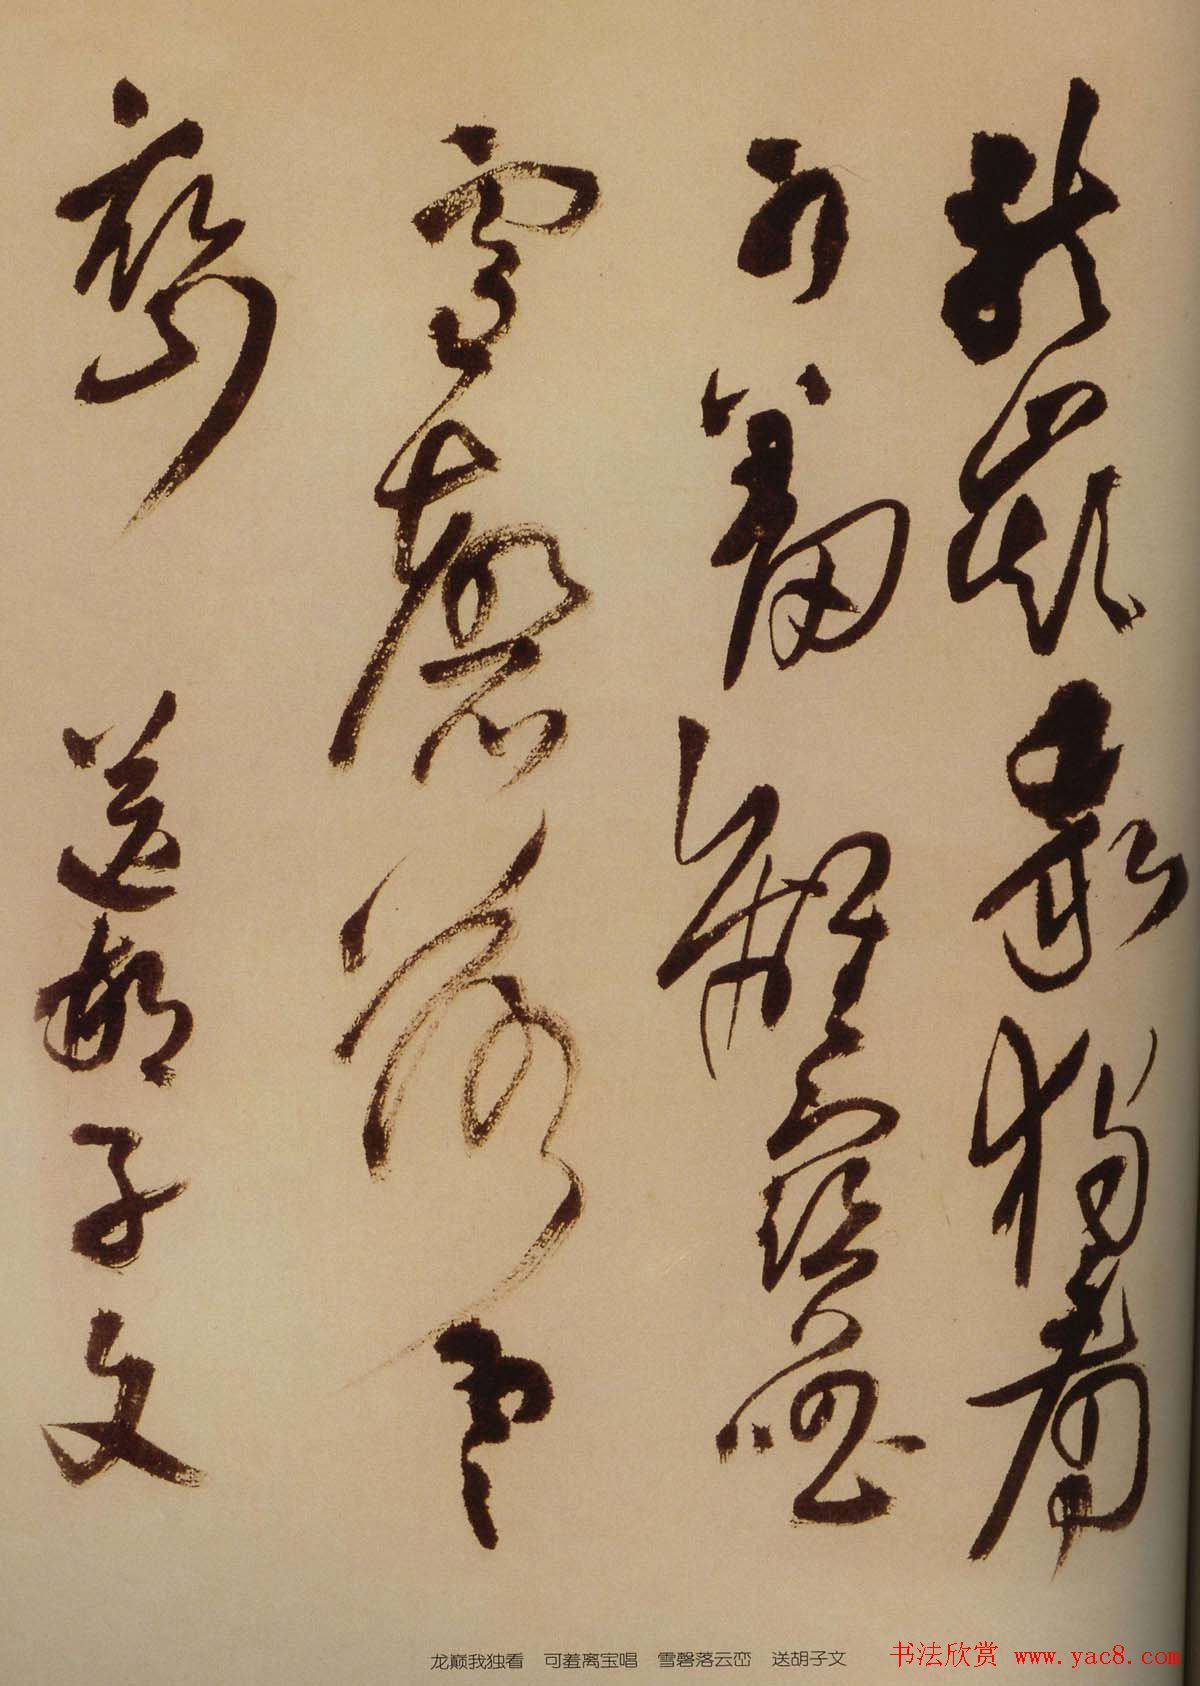 龍巔我獨看
可羞離寶唱
雪磬落雲
巒 送胡子文
龙巅我独看 可羞离宝唱 雪磬落云峦 送胡子文
书法欣赏 www.yac8.com